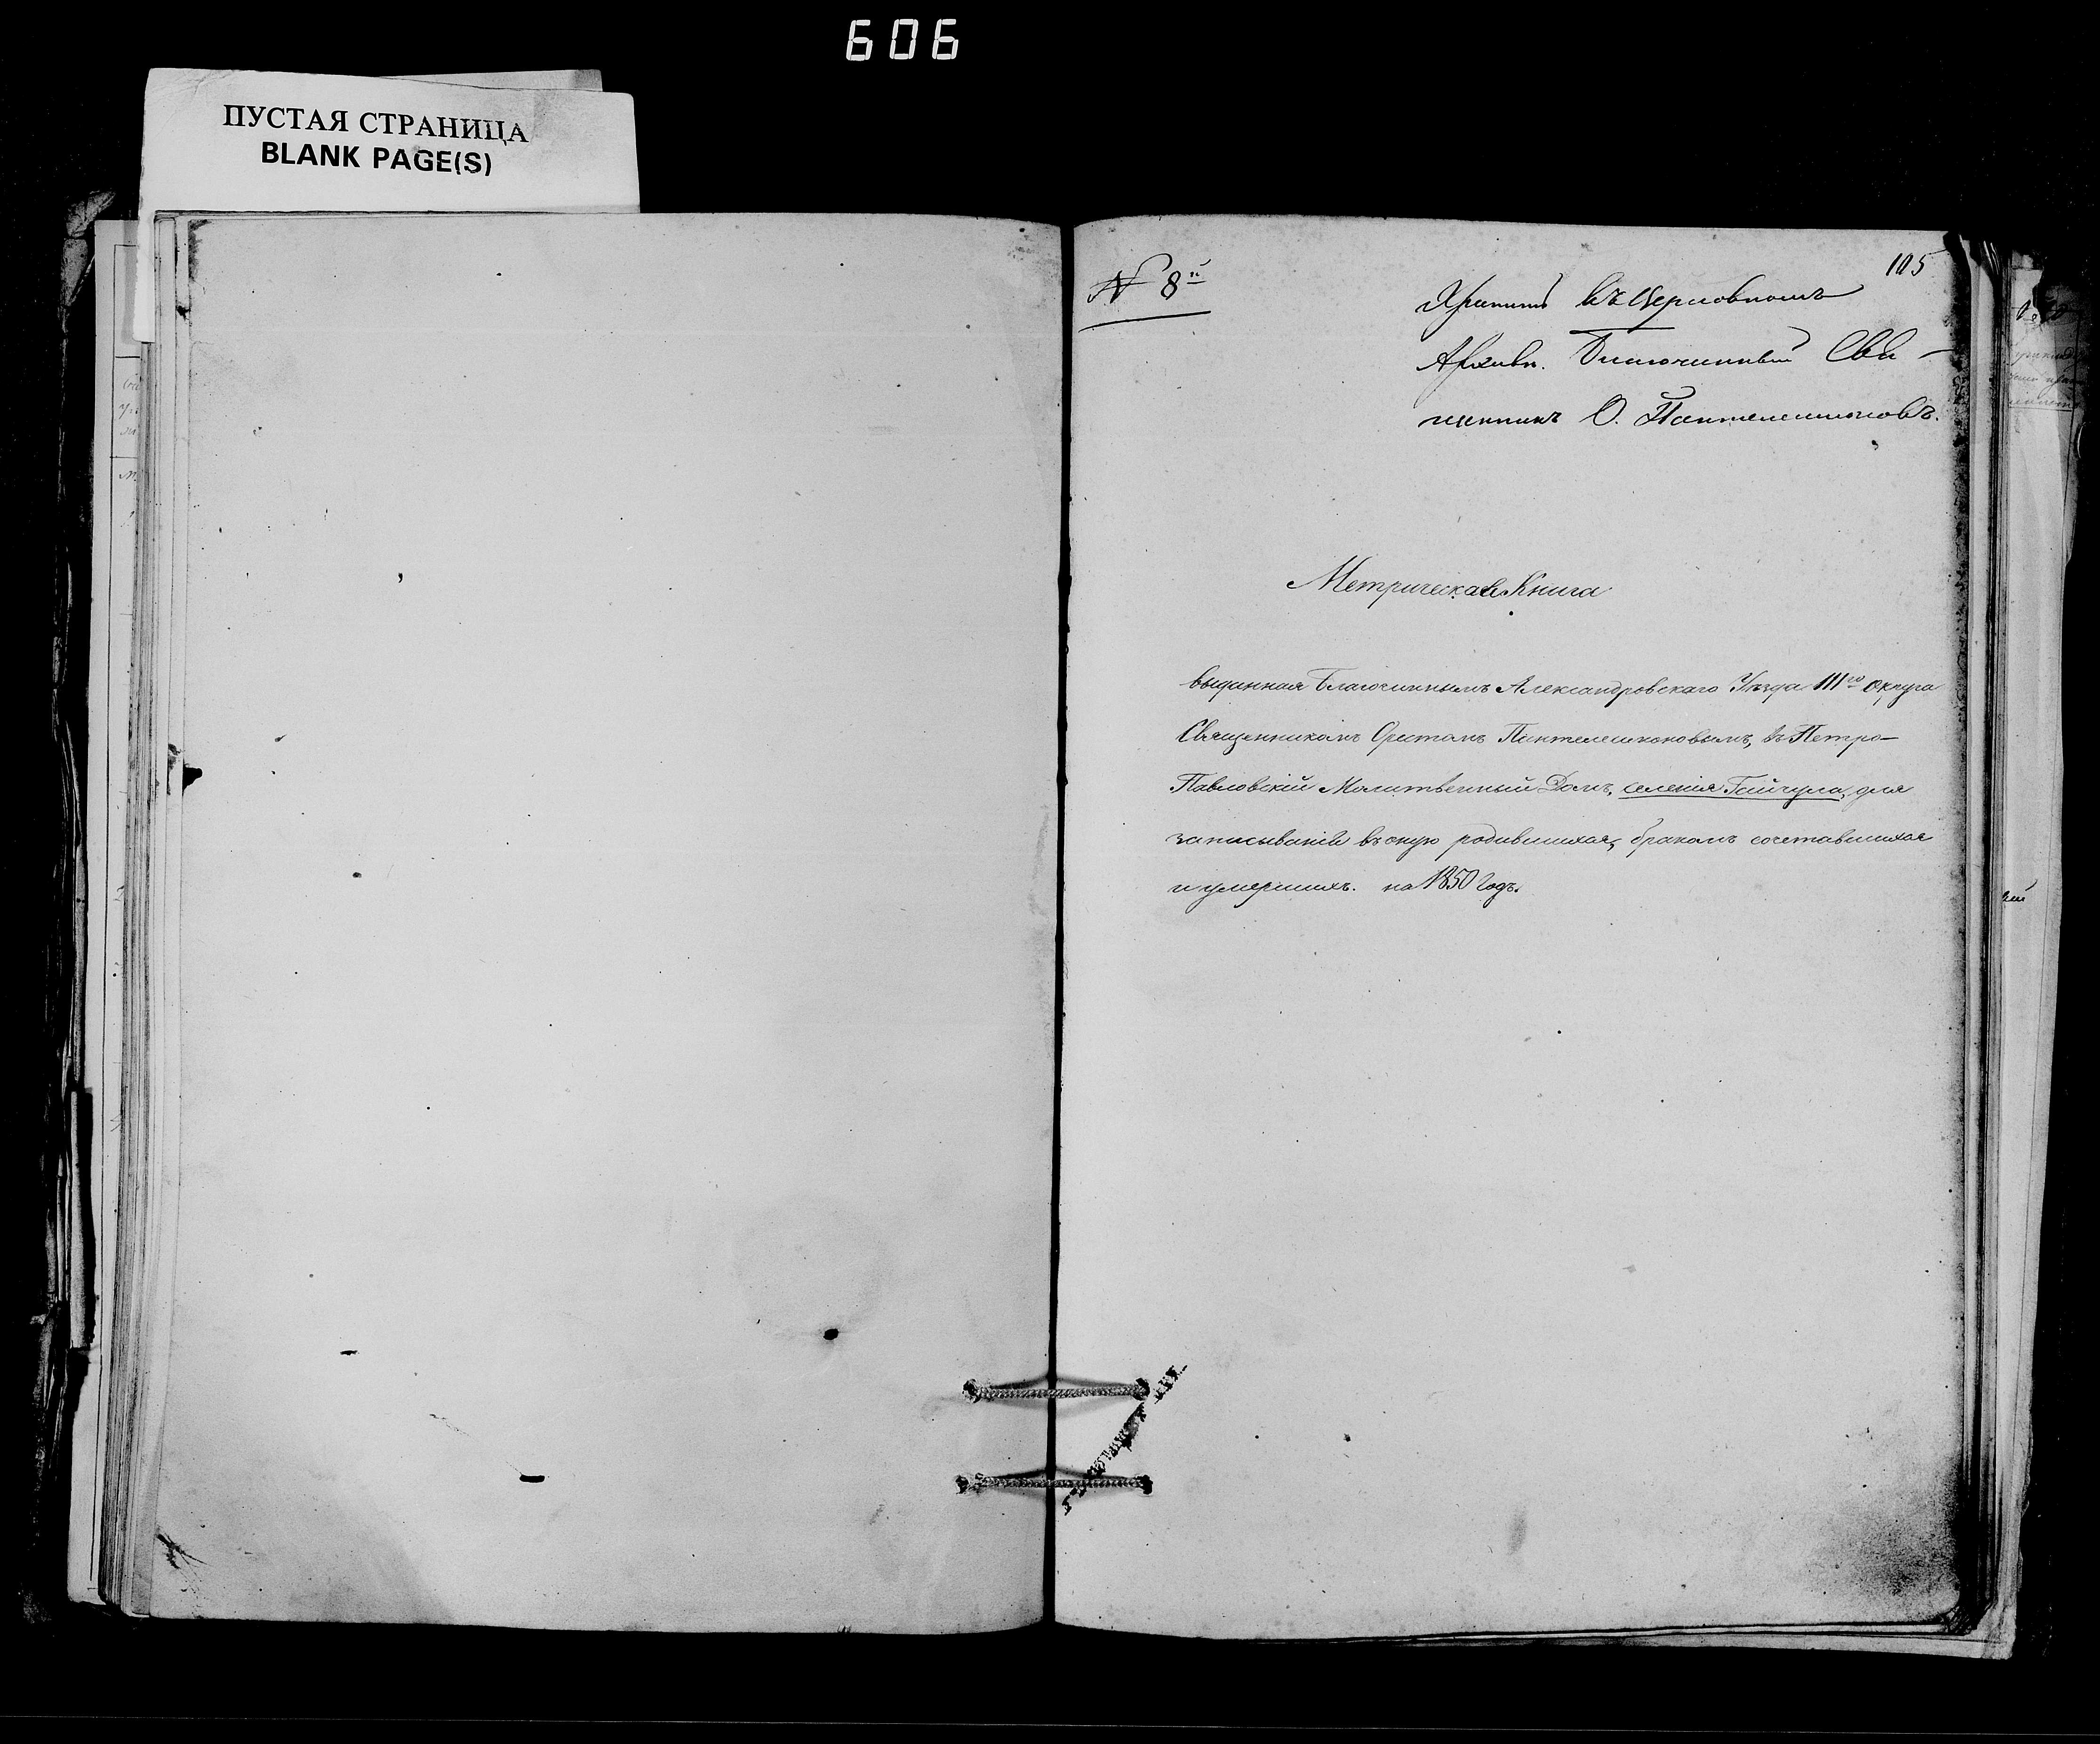 606
ПУСТАЯ СТРАНИЦА
BLANK PAGE(S)
105
№ 8й
Хранить въ Церковномъ
Архивѣ. Благочинный Свя-
щенникъ О. Пантелеимоновъ.
Метрическая Книга
выданная Благочиннымъ Александровскаго Уѣзда IIIго Округа
Священникомъ Орестомъ Пантелеимоновымъ, въ Петро-
Павловскій Молитвенный Домъ, селенія Гайчула, для
записыванія въ оную родившихся, бракомъ сочетавшихся
и умершихъ. на 1850 годъ.